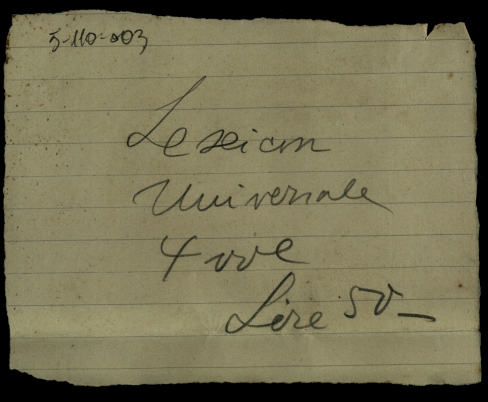 5-110-003
Lexicon
Universale
4 vol
Lire 50-